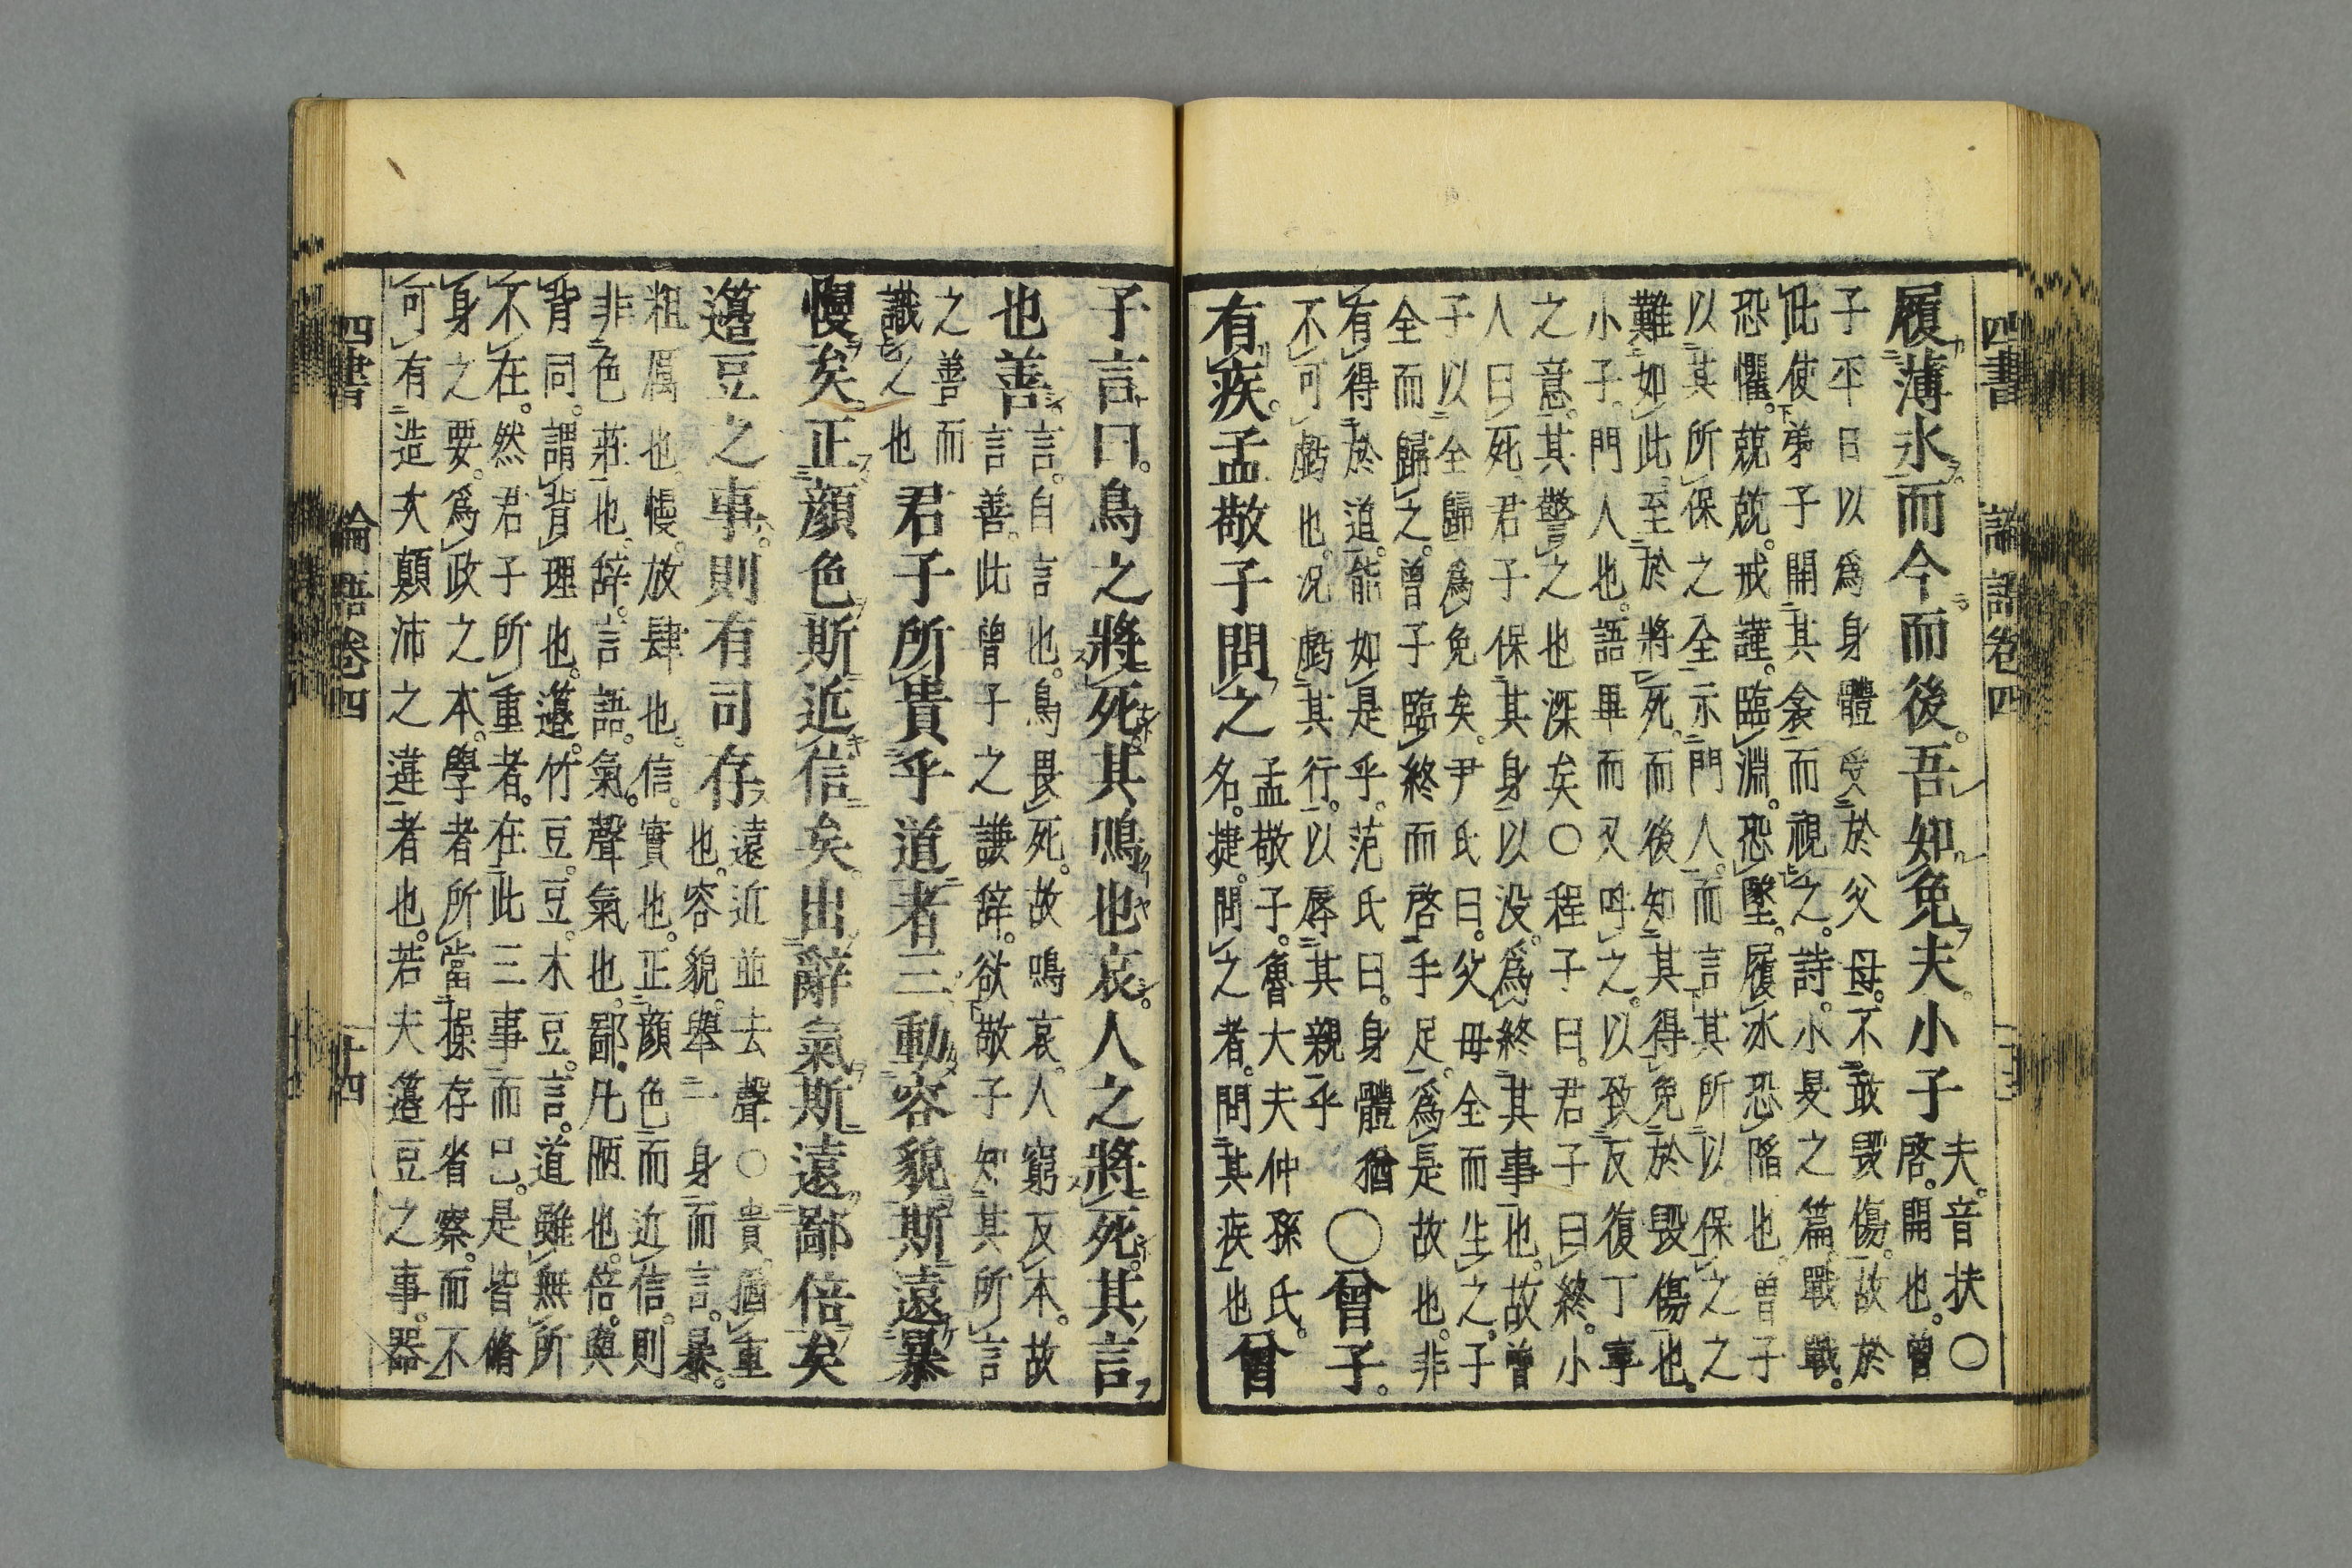 四書 論語卷四
履薄氷而今而後。吾知免夫。小子
夫。音扶○
啓。開也。曾
子平日以爲身體受於父母。不敢毀傷。故於
此使弟子開其衾而視之。詩。小旻之篇。戰戰。
恐懼。兢兢。戒謹。臨淵。恐墜。履冰恐陷也。曾子
以其所保之全示門人。而言其所以保之之
難如此。至於將死。而後知其得免於毀傷也。
小子。門人也。語畢而又呼之。以致反復丁寧
之意。其警之也深矣○程子曰。君子曰終。小
人曰死。君子保其身以没。爲終其事也。故曾
子以全歸爲免矣。尹氏曰。父母全而生之。子
全而歸之。曾子臨終而啓手足。爲是故也。非
有得於道。能如是乎。范氏曰。身體猶
不可虧也。况虧其行。以辱其親乎
○曾子。
有疾。孟敬子問之
孟敬子。魯大夫仲孫氏。
名。捷。問之者。問其疾也
曾
子言曰。鳥之將死其鳴也哀。人之將死。其言
也善
言。自言也。鳥畏死。故鳴哀。人窮反本。故
言善。此曾子之謙辭。欲敬子知其所言
之善而
識之也
君子所貴乎道者三動容貌斯遠暴
慢矣。正顏色斯近信矣出辭氣斯遠鄙倍矣
籩豆之事。則有司存
遠近並去聲○貴。猶重
也。容貌。舉一身而言。暴。
粗厲也。慢。放肆也。信。實也。正顏色而近信。則
非色莊也。辞。言語。氣。聲氣也。鄙。凡陋也。倍。與
背同。謂背理也。籩。竹豆。豆。木豆。言。道雖無所
不在。然君子所重者。在此三事而已。是皆脩
身之要。爲政之本。學者所當操存省察。而不
可有造次顛沛之違者也。若夫籩豆之事。器
四書 論語卷四 十四